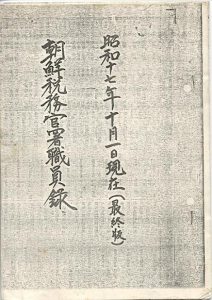 昭和十七年十月一日現在(最終版)
朝鮮税務官署職員録